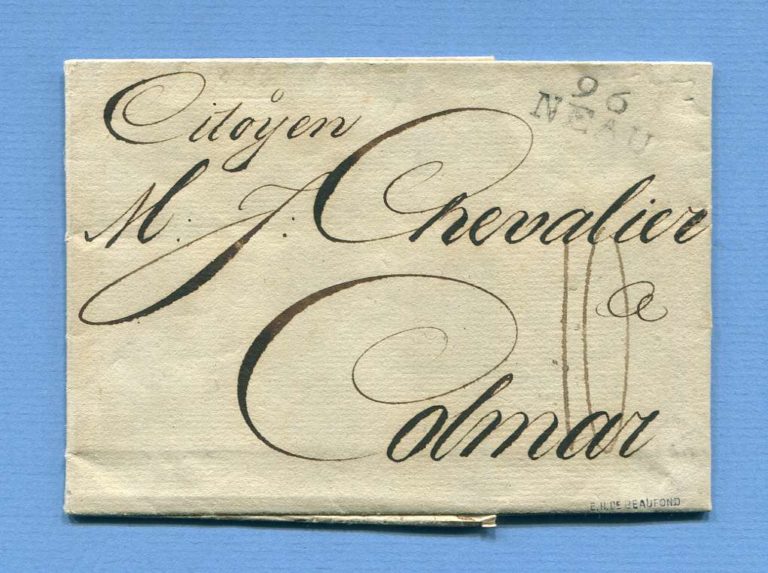 96
NEAU
Citoÿen
M. J: Chevalier
a
10
Colmar
E.H. DE BEAUFOND